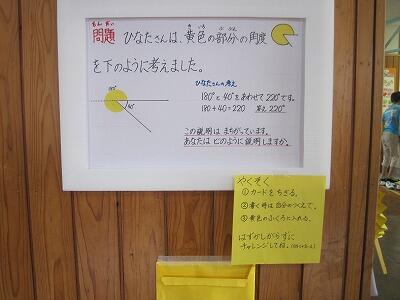 もんだい
問題 ひなたさんは、黄色の部分の角度
きいろ ぶぶん かくど
を下のように考えました。
ひなたさんの考え
180°と40°をあわせて220°です。
180+40=220 答え 220°
180°
40°
この説明は まちがっています。
あなたは どのように説明しますか。
やくそく
①カードをちぎる。
②書く時は自分のつくえで。
③黄色のふくろに入れる。
はずかしがらずに
チャレンジしてね。